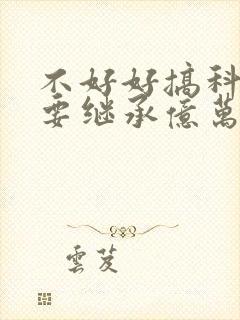 不好好搞科
要继承億萬
雲芨